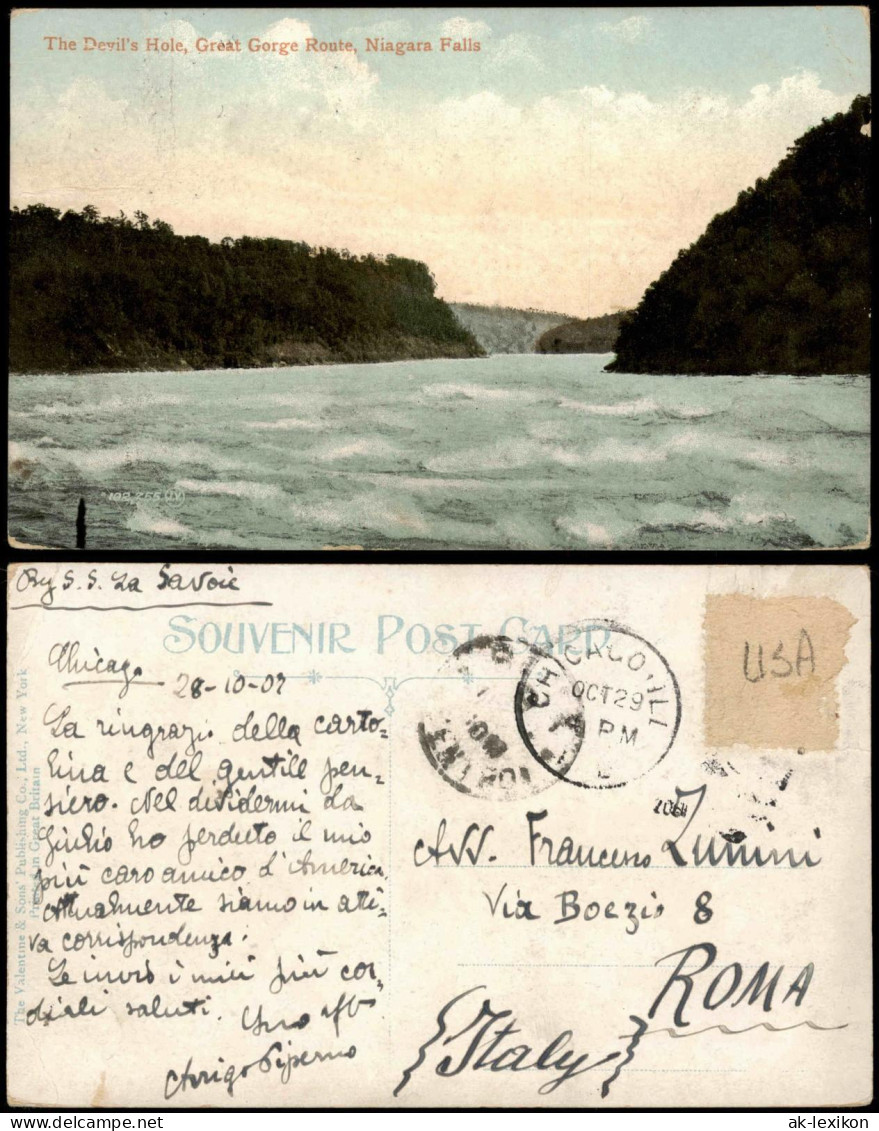 The Devil's Hole, Great Gorge Route, Niagara Falls
By S. S. La Savoie
SOUVENIR POST CARD
Chicago
28-10-07
La ringrazio della carto=
lina e del gentile pen=
siero. Nel dividermi da
Giulio ho perduto il mio
più caro amico d'America
Attualmente siamo in atti=
va corrispondenza.
Le invio i miei più cor=
diali saluti.
Suo aff
Arrigo Piperno
The Valentine & Sons' Publishing Co., Ltd., New York
Printed in Great Britain
CHICAGO, ILL
OCT 29
PM
USA
Avv. Francesco Zunini
Via Boezio 8
ROMA
{Italy}
ak-lexikon